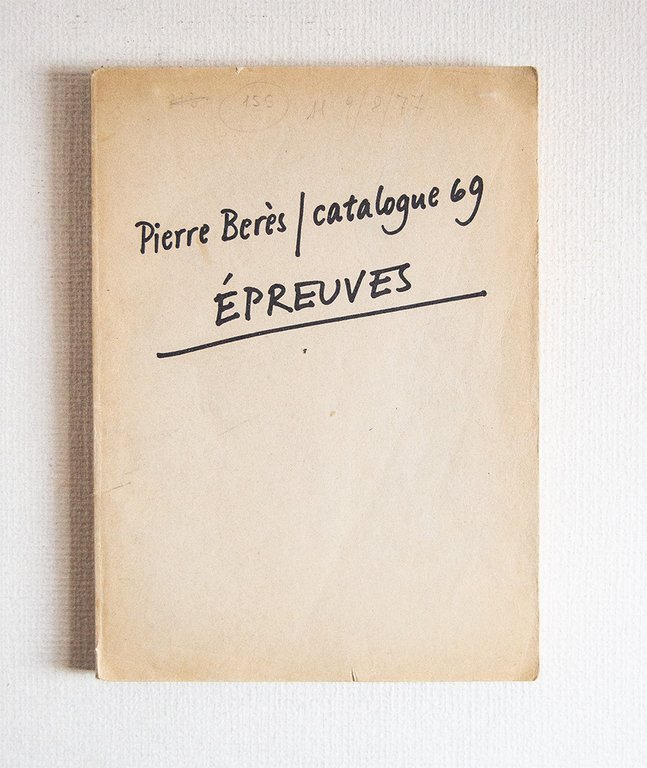 155
Pierre Berès / catalogue 69
ÉPREUVES